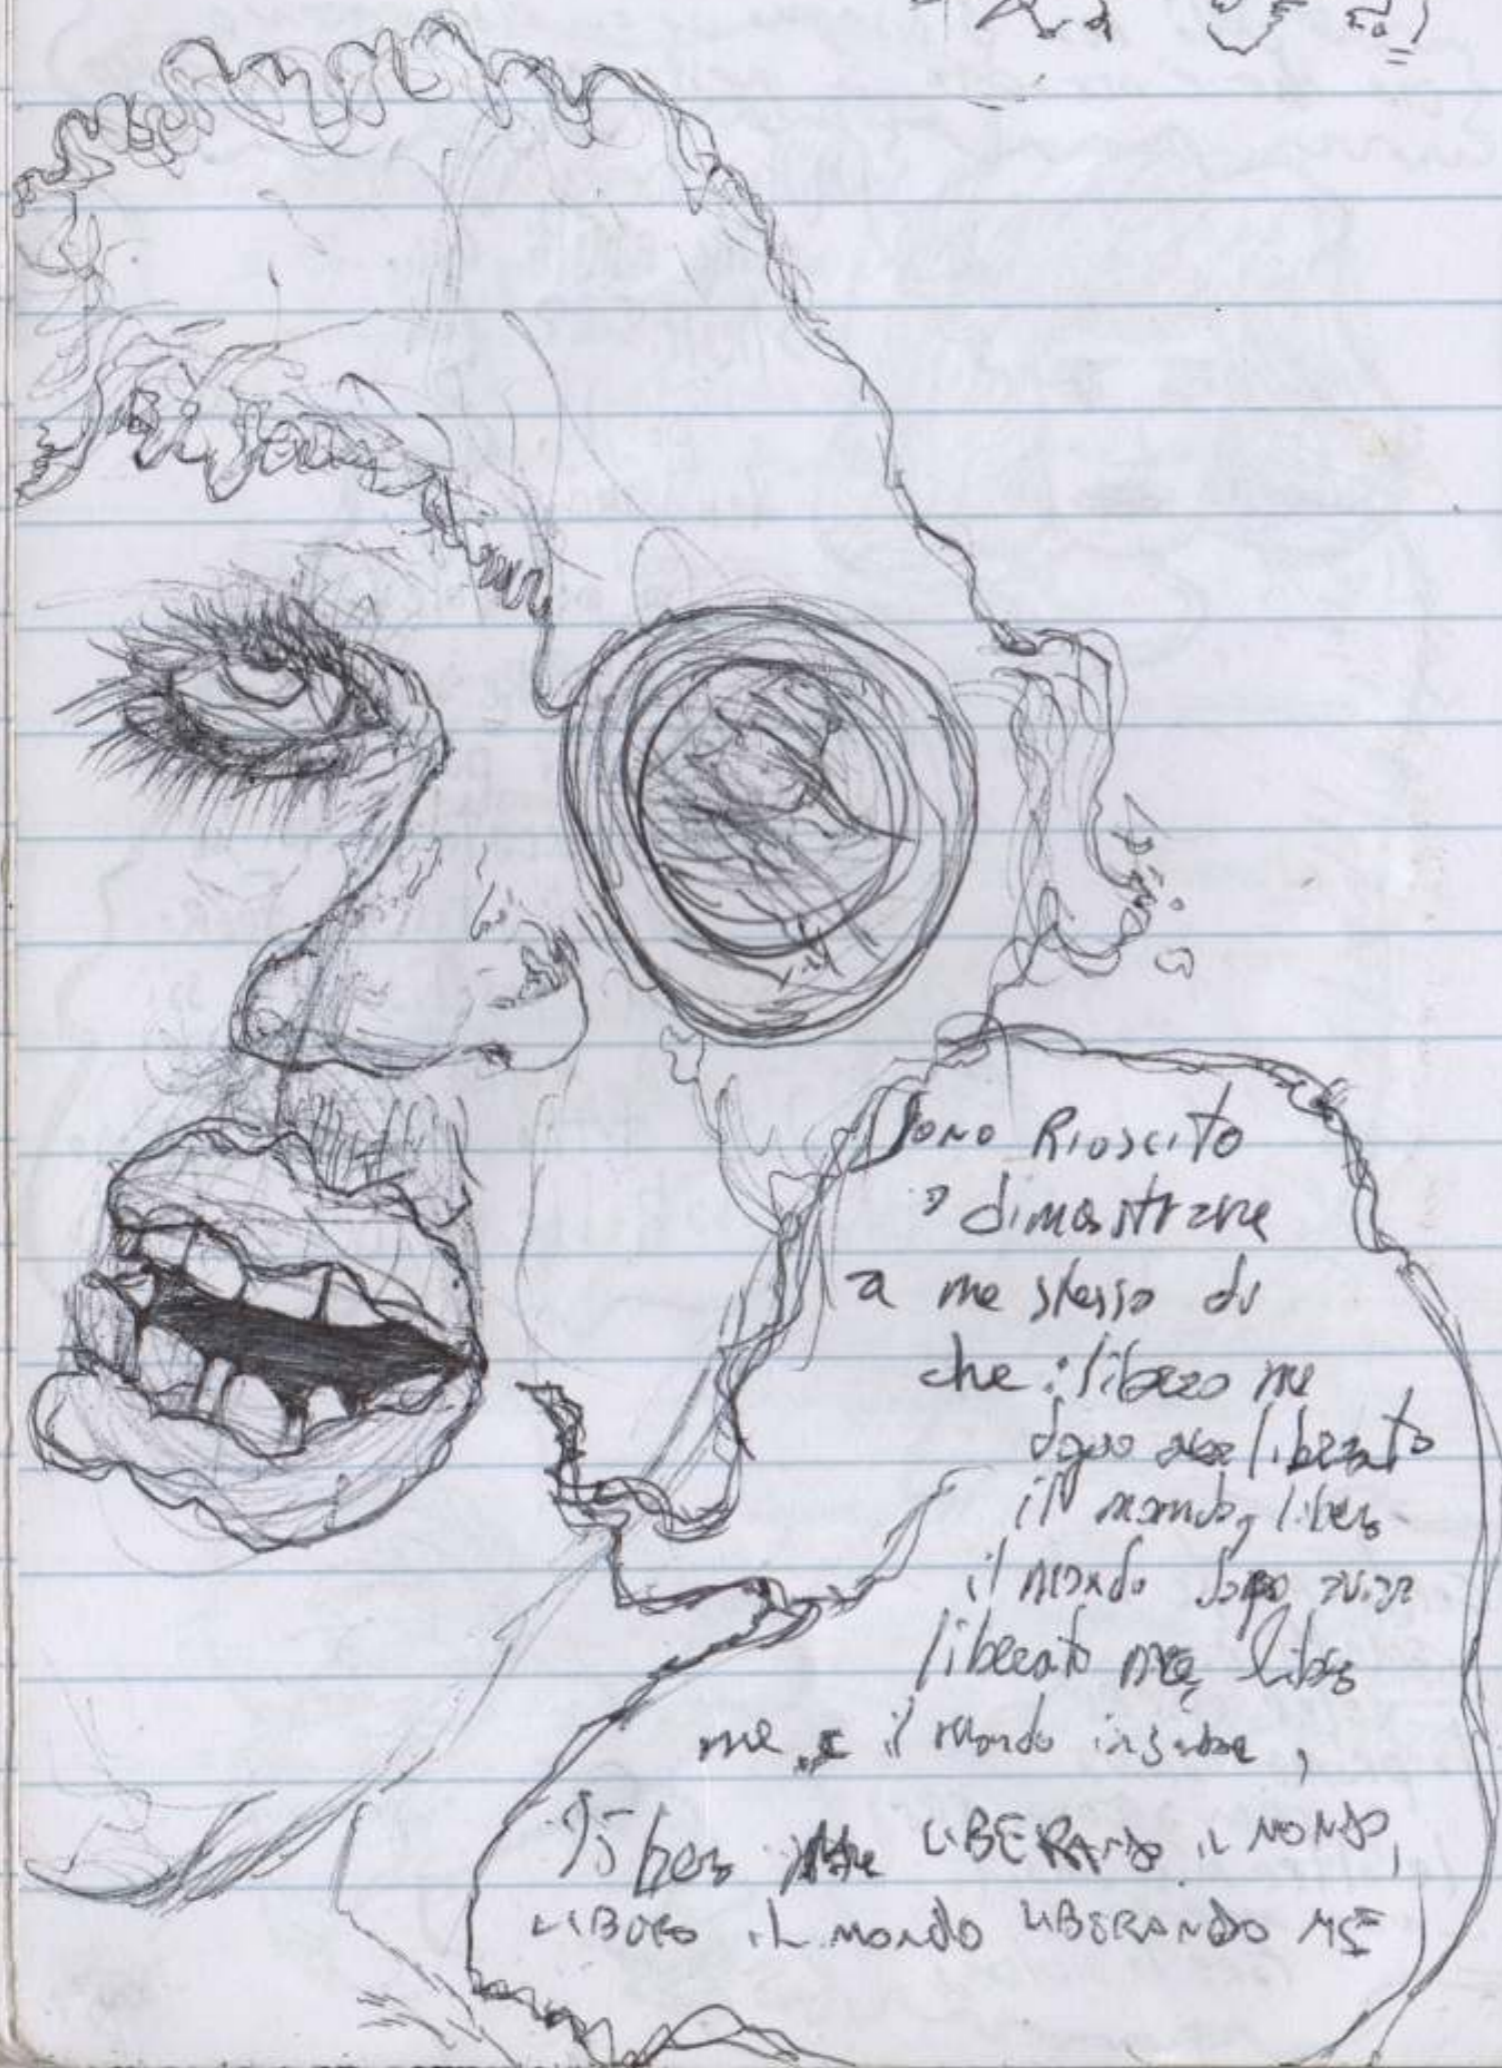 Sono Riuscito
a dimostrare
a me stesso di
che : libero me
dopo aver liberato
il mondo, libero
il mondo dopo aver
liberato me, libero
me e il mondo insieme,
libero me LIBERANDO IL MONDO,
LIBERO IL MONDO LIBERANDO ME